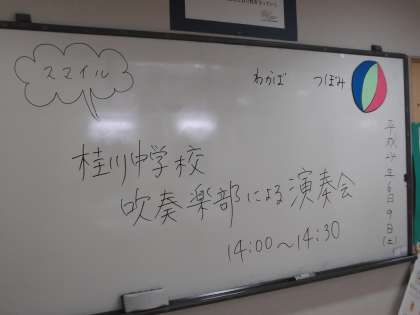 スマイル
わかば つぼみ
桂川中学校
吹奏楽部による演奏会
14:00～14:30
平成24年6月9日(土)